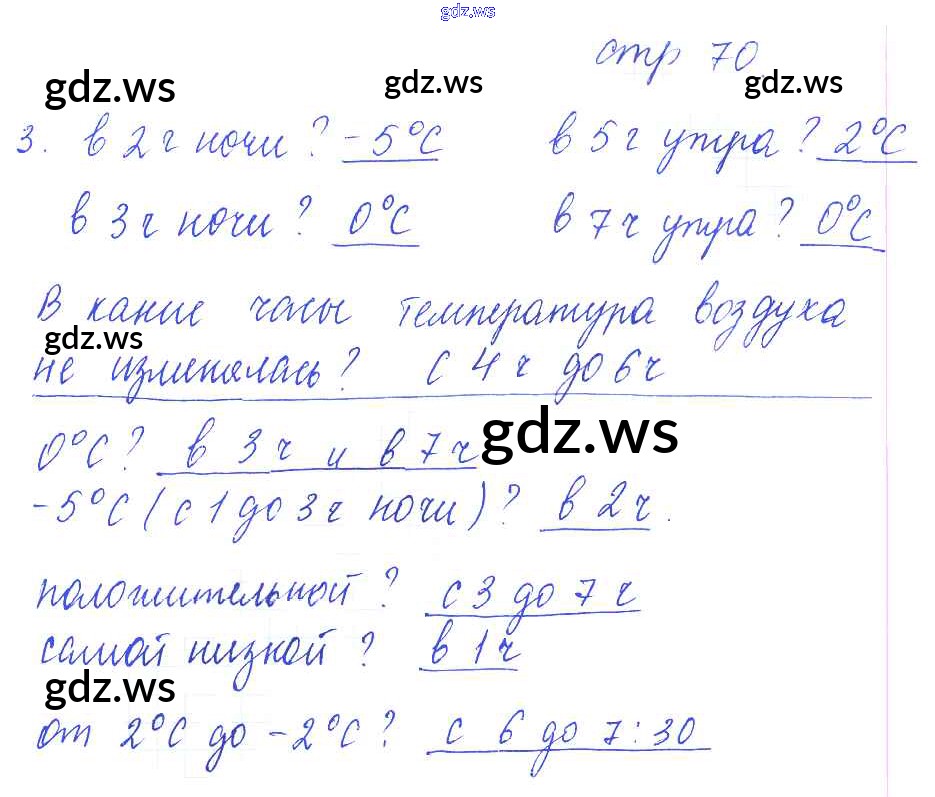 gdz.ws
стр 70
gdz.ws gdz.ws gdz.ws
3. в 2 ч ночи? -5°C в 5 ч утра? 2°C
в 3 ч ночи? 0°C в 7 ч утра? 0°C
В какие часы температура воздуха
gdz.ws
не изменялась? с 4 ч до 6 ч
gdz.ws
0°C? в 3 ч и в 7 ч
-5°C (с 1 до 3 ч ночи)? в 2 ч.
положительной? с 3 до 7 ч
самой низкой? в 1 ч
gdz.ws
от 2°C до -2°C? с 6 до 7:30